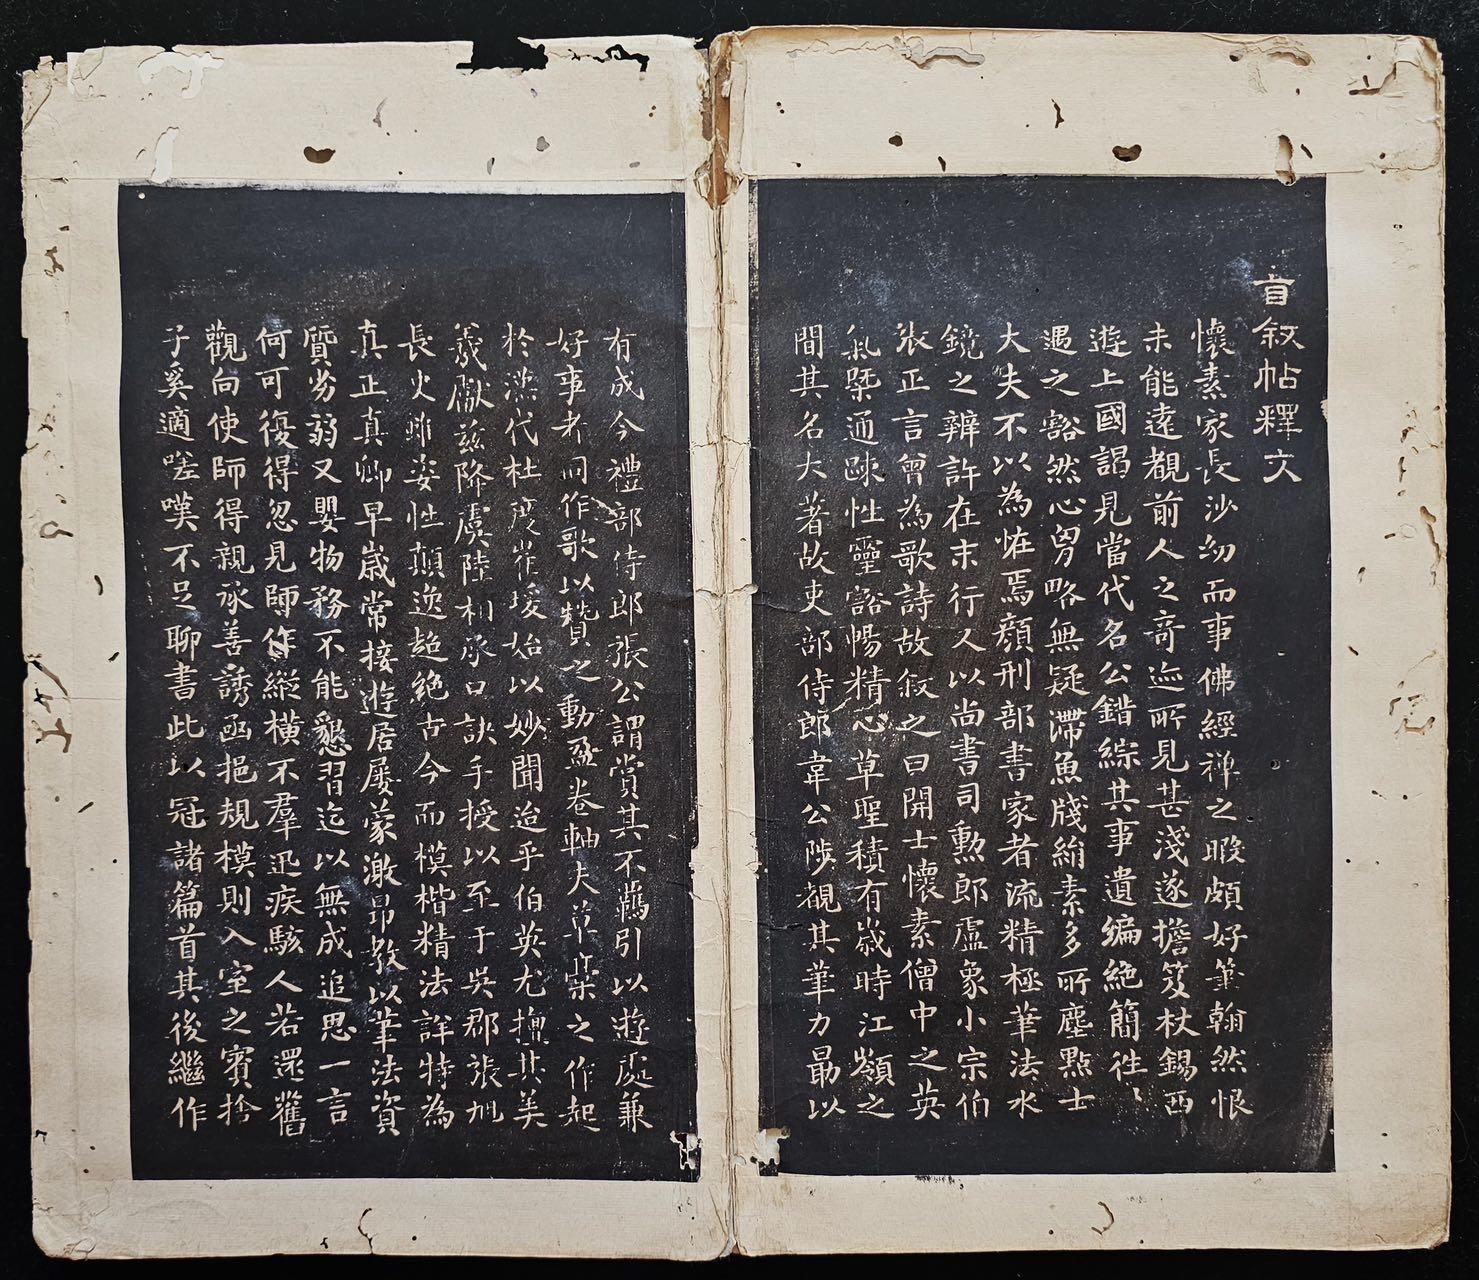 自叙帖釋文
懷素家長沙㓜而事佛經禅之暇頗好筆翰然恨
未能逺覩前人之竒迹所見甚淺遂擔笈杖錫西
遊上國謁見當代名公錯綜其事遺編絶簡徃〻
遇之豁然心胷略無疑滯魚牋絹素多所塵點士
大夫不以為恠焉顔刑部書家者流精極筆法水
鏡之辨許在末行又以尚書司勲郎盧象小宗伯
張正言曾為歌詩故叙之曰開士懷素僧中之英
氣槩通踈性靈豁暢精心草聖積有歲時江嶺之
間其名大著故吏部侍郎韋公陟覩其筆力勗以
有成今禮部侍郎張公謂賞其不羈引以遊處兼
好事者同作歌以賛之動盈卷軸夫草藁之作起
於漢代杜度崔瑗始以妙聞迨乎伯英尤擅其美
羲獻茲降虞陸相承口訣手授以至于吳郡張旭
長史雖姿性顛逸超絶古今而模楷精法詳特為
真正真卿早歲常接遊居屡蒙激昻教以筆法資
質劣弱又嬰物務不能懇習迄以無成追思一言
何可復得忽見師作縱橫不羣迅疾駭人若還舊
觀向使師得親承善誘函挹規模則入室之賓捨
子奚適嗟嘆不足聊書此以冠諸篇首其後繼作